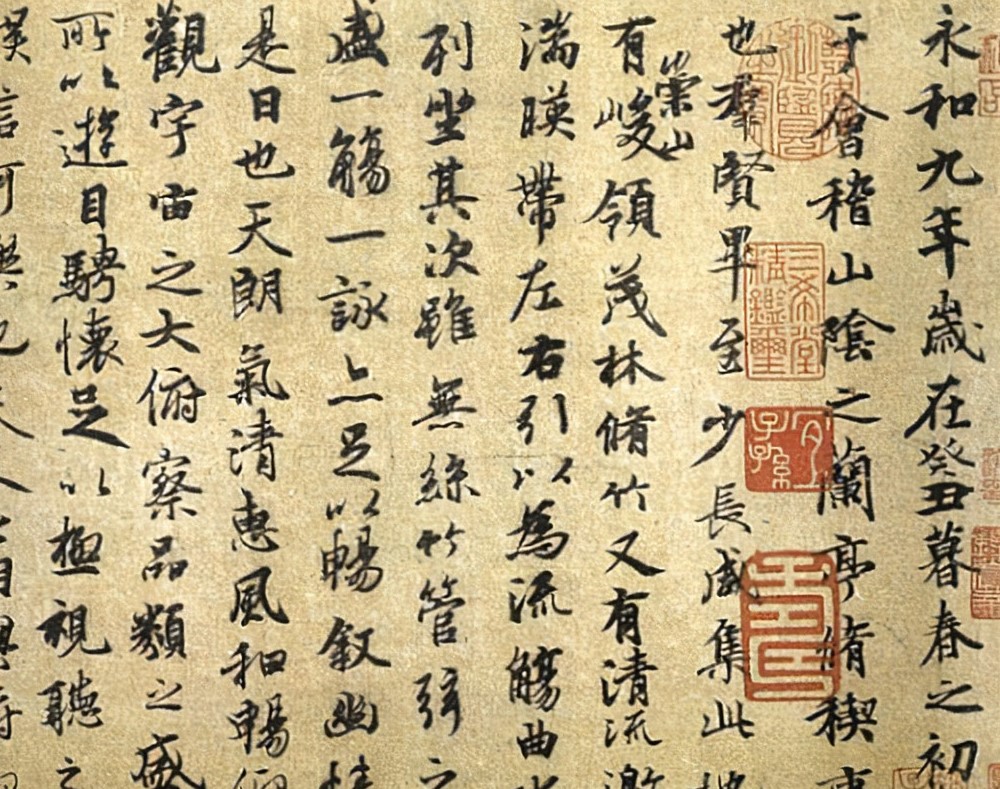 永和九年歲在癸丑暮春之初
于會稽山陰之蘭亭脩禊事
也羣賢畢至少長咸集此地
有崇山峻領茂林脩竹又有清流激
湍暎帶左右引以為流觴曲水
列坐其次雖無絲竹管弦之
盛一觴一詠亦足以暢叙幽情
是日也天朗氣清惠風和暢仰
觀宇宙之大俯察品類之盛
所以遊目騁懷足以極視聽之
三希堂精鑑璽
宜子孫